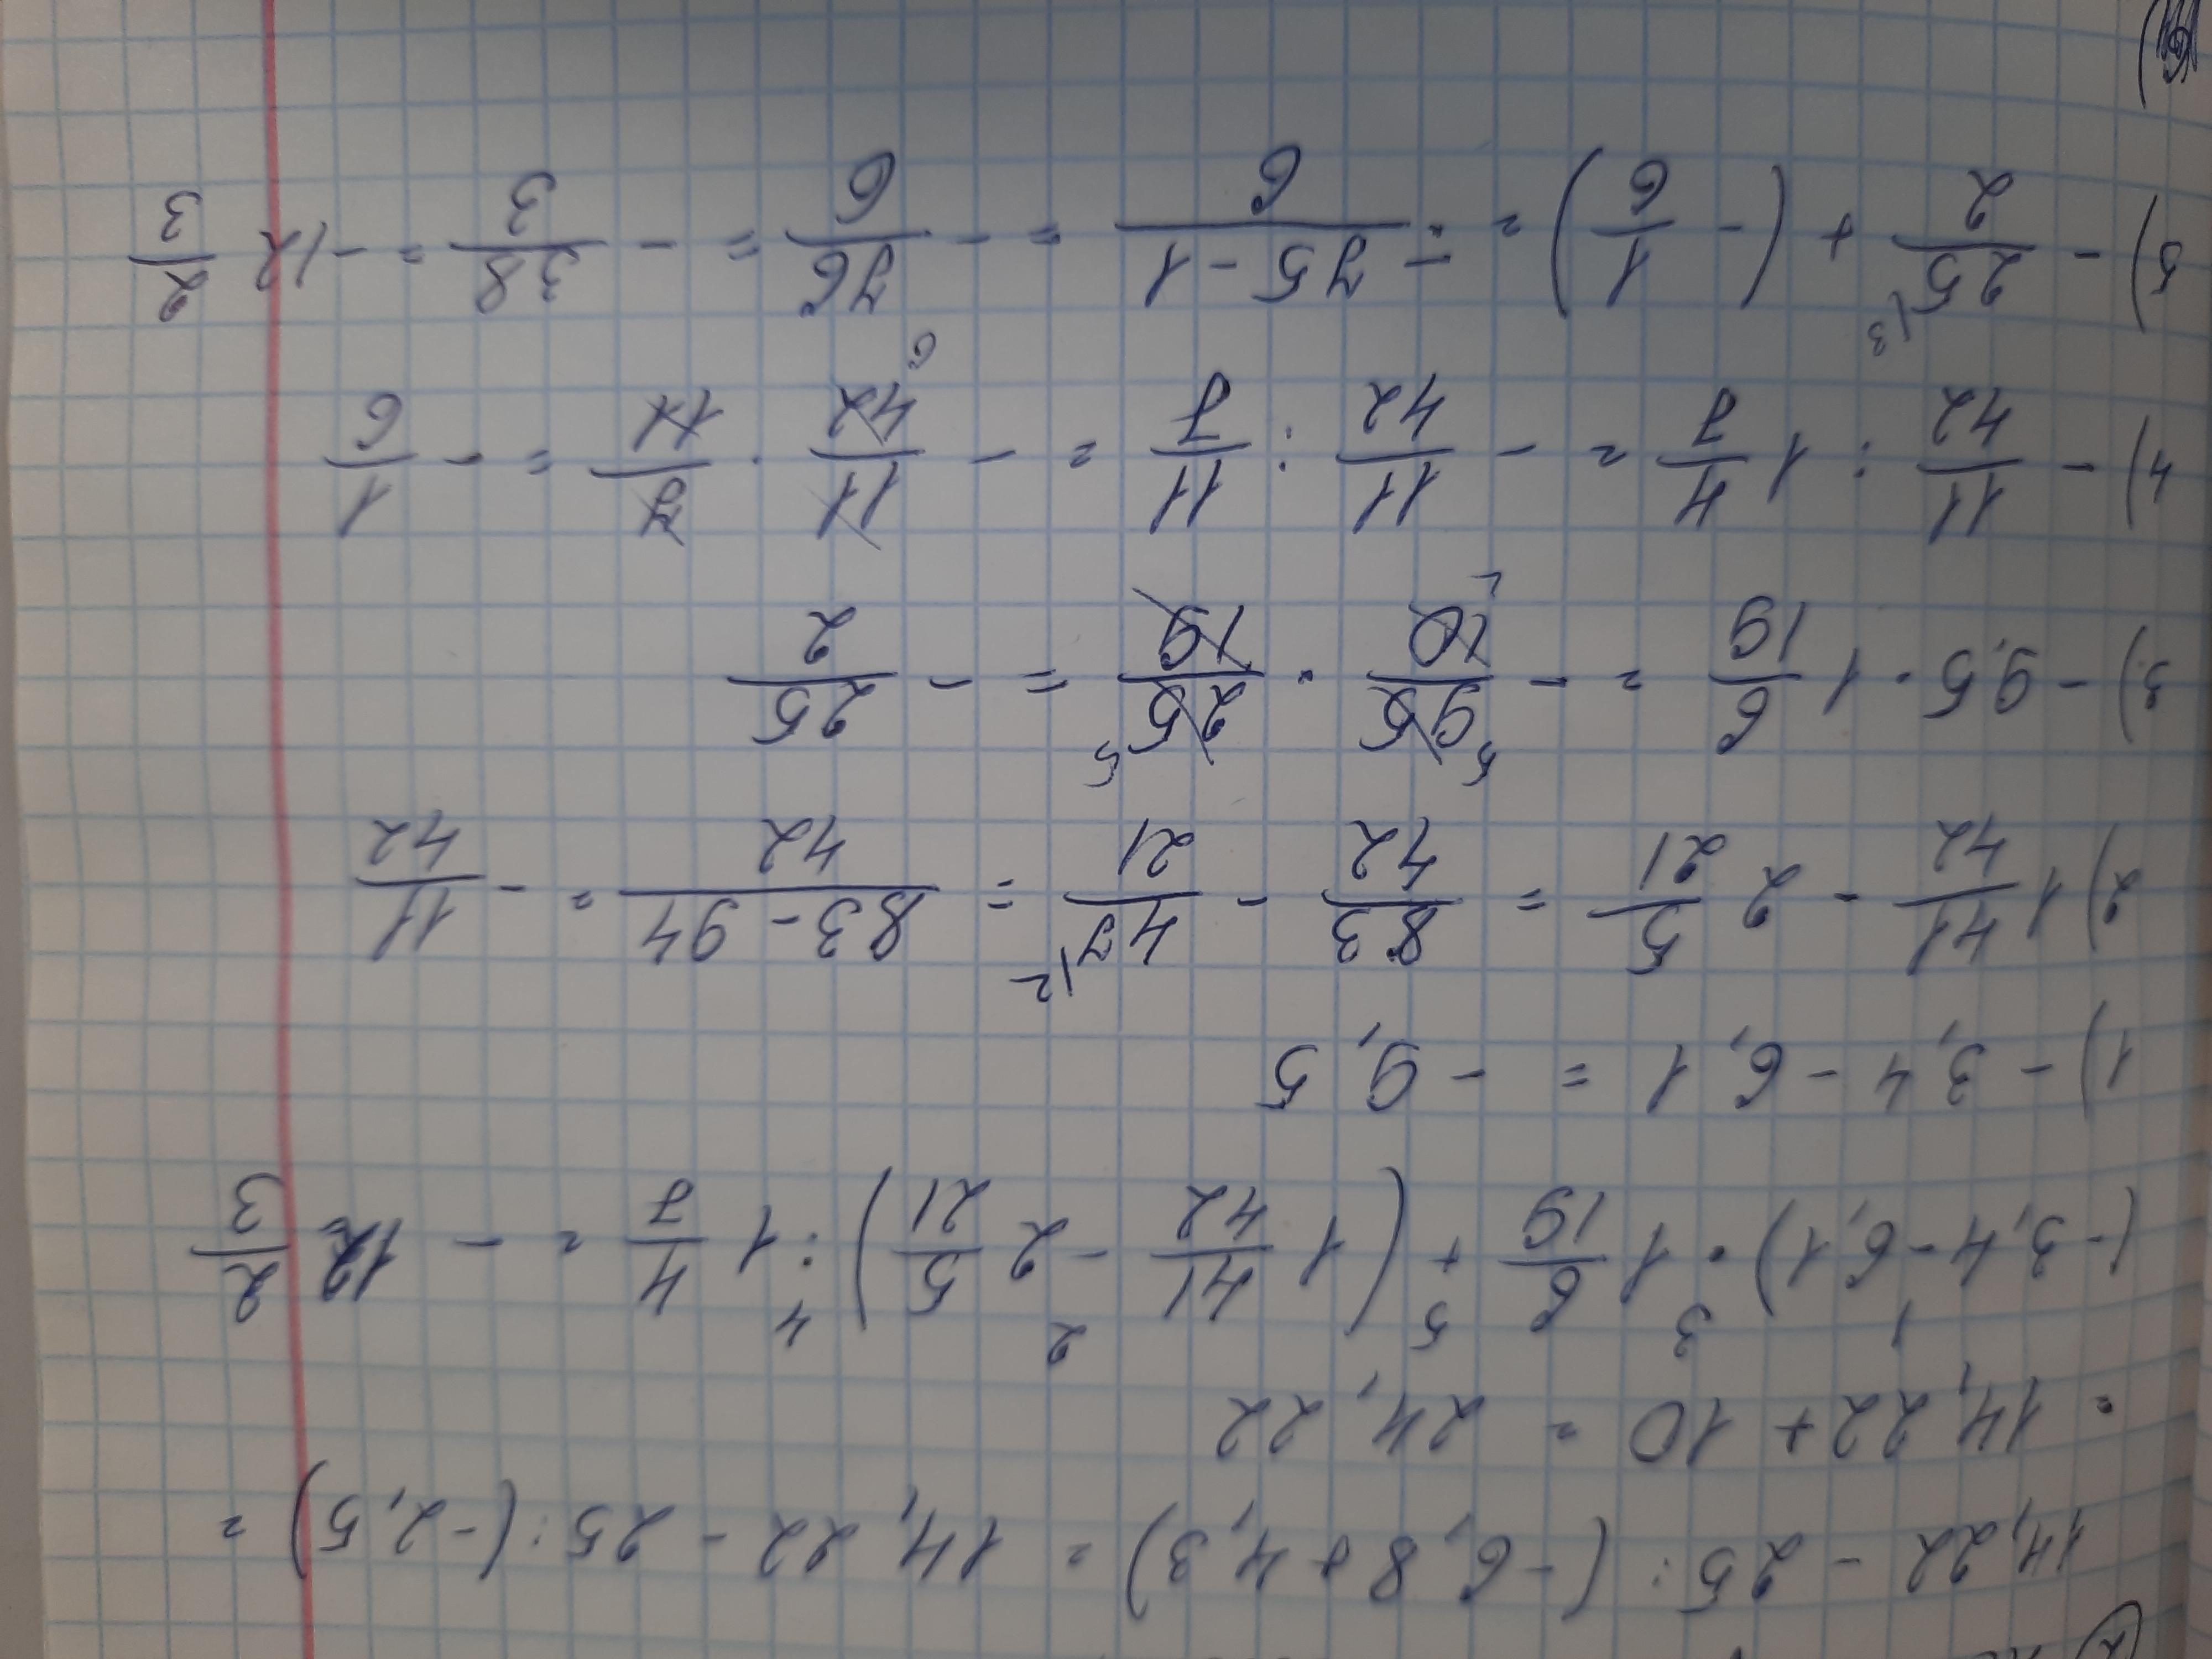 14,22 - 25 : (-6,8 + 4,3) = 14,22 - 25 : (-2,5) =
= 14,22 + 10 = 24,22
1 3 5 2 4
(-3,4 - 6,1) · 1 6/19 + (1 41/42 - 2 5/21) : 1 4/7 = - 12 2/3
1) - 3,4 - 6,1 = - 9,5
2) 1 41/42 - 2 5/21 = 83/42 - 47/21 |2 = 83 - 94/42 = - 11/42
3) - 9,5 · 1 6/19 = - 95/10 · 25/19 = - 25/2
4) - 11/42 : 1 4/7 = - 11/42 : 11/7 = - 11/42 · 7/11 = - 1/6
5) - 25/2 |3 + (- 1/6) = - 75 - 1/6 = - 76/6 = - 38/3 = - 12 2/3